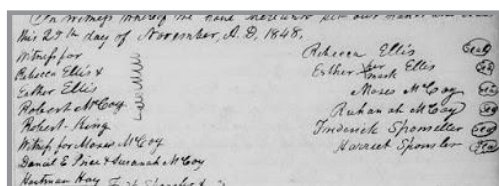 In Witness Whereof we have hereunto set our hands and seals
this 29th day of November, A.D. 1848.
Witness for
Rebecca Ellis &
Esther Ellis
Robert McCoy
Robert King
Witness for Moses McCoy
Daniel E Price & Susanah McCoy
Hartman Hay
Rebecca Ellis Seal
Esther her mark Ellis Seal
Moses McCoy Seal
Ruhanah McCoy Seal
Frederick Sponseller Seal
Harriet Sponsler Seal